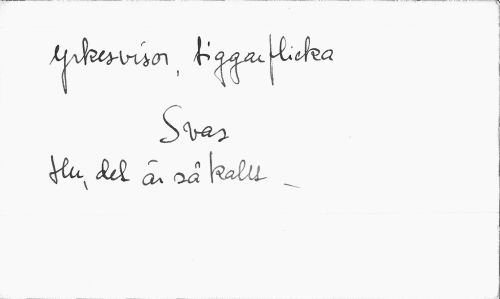 Yrkesvisor, tiggarflicka
Svar
Hu, det är så kallt _